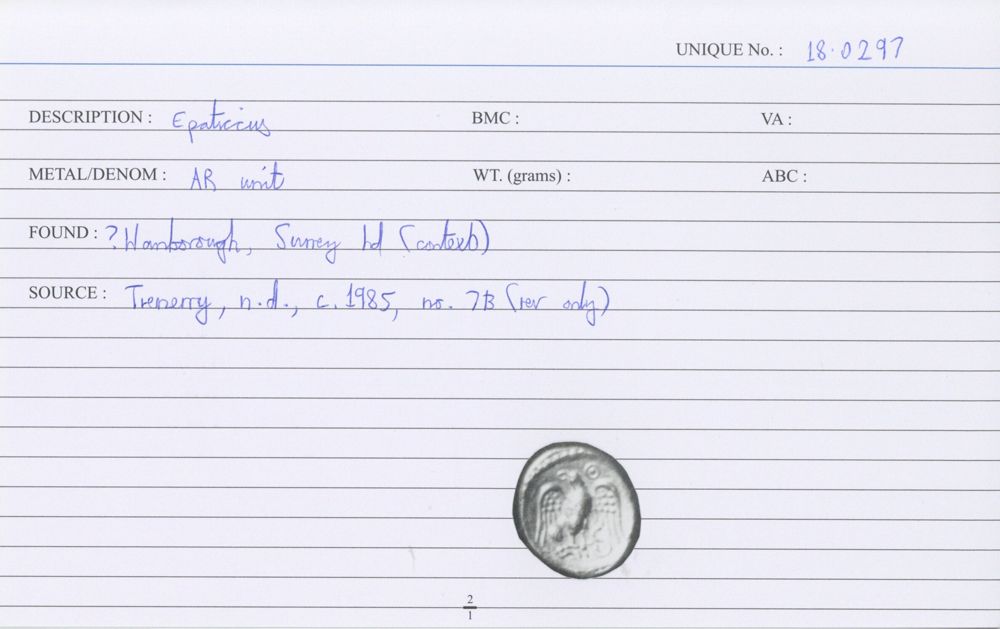 UNIQUE No. : 18.0297
DESCRIPTION : Epaticcus BMC : VA :
METAL/DENOM : AR unit WT. (grams) : ABC :
FOUND : ? Wanborough, Surrey hd (context)
SOURCE : Trenerry, n.d., c. 1985, no. 7B (rev only)
2
1